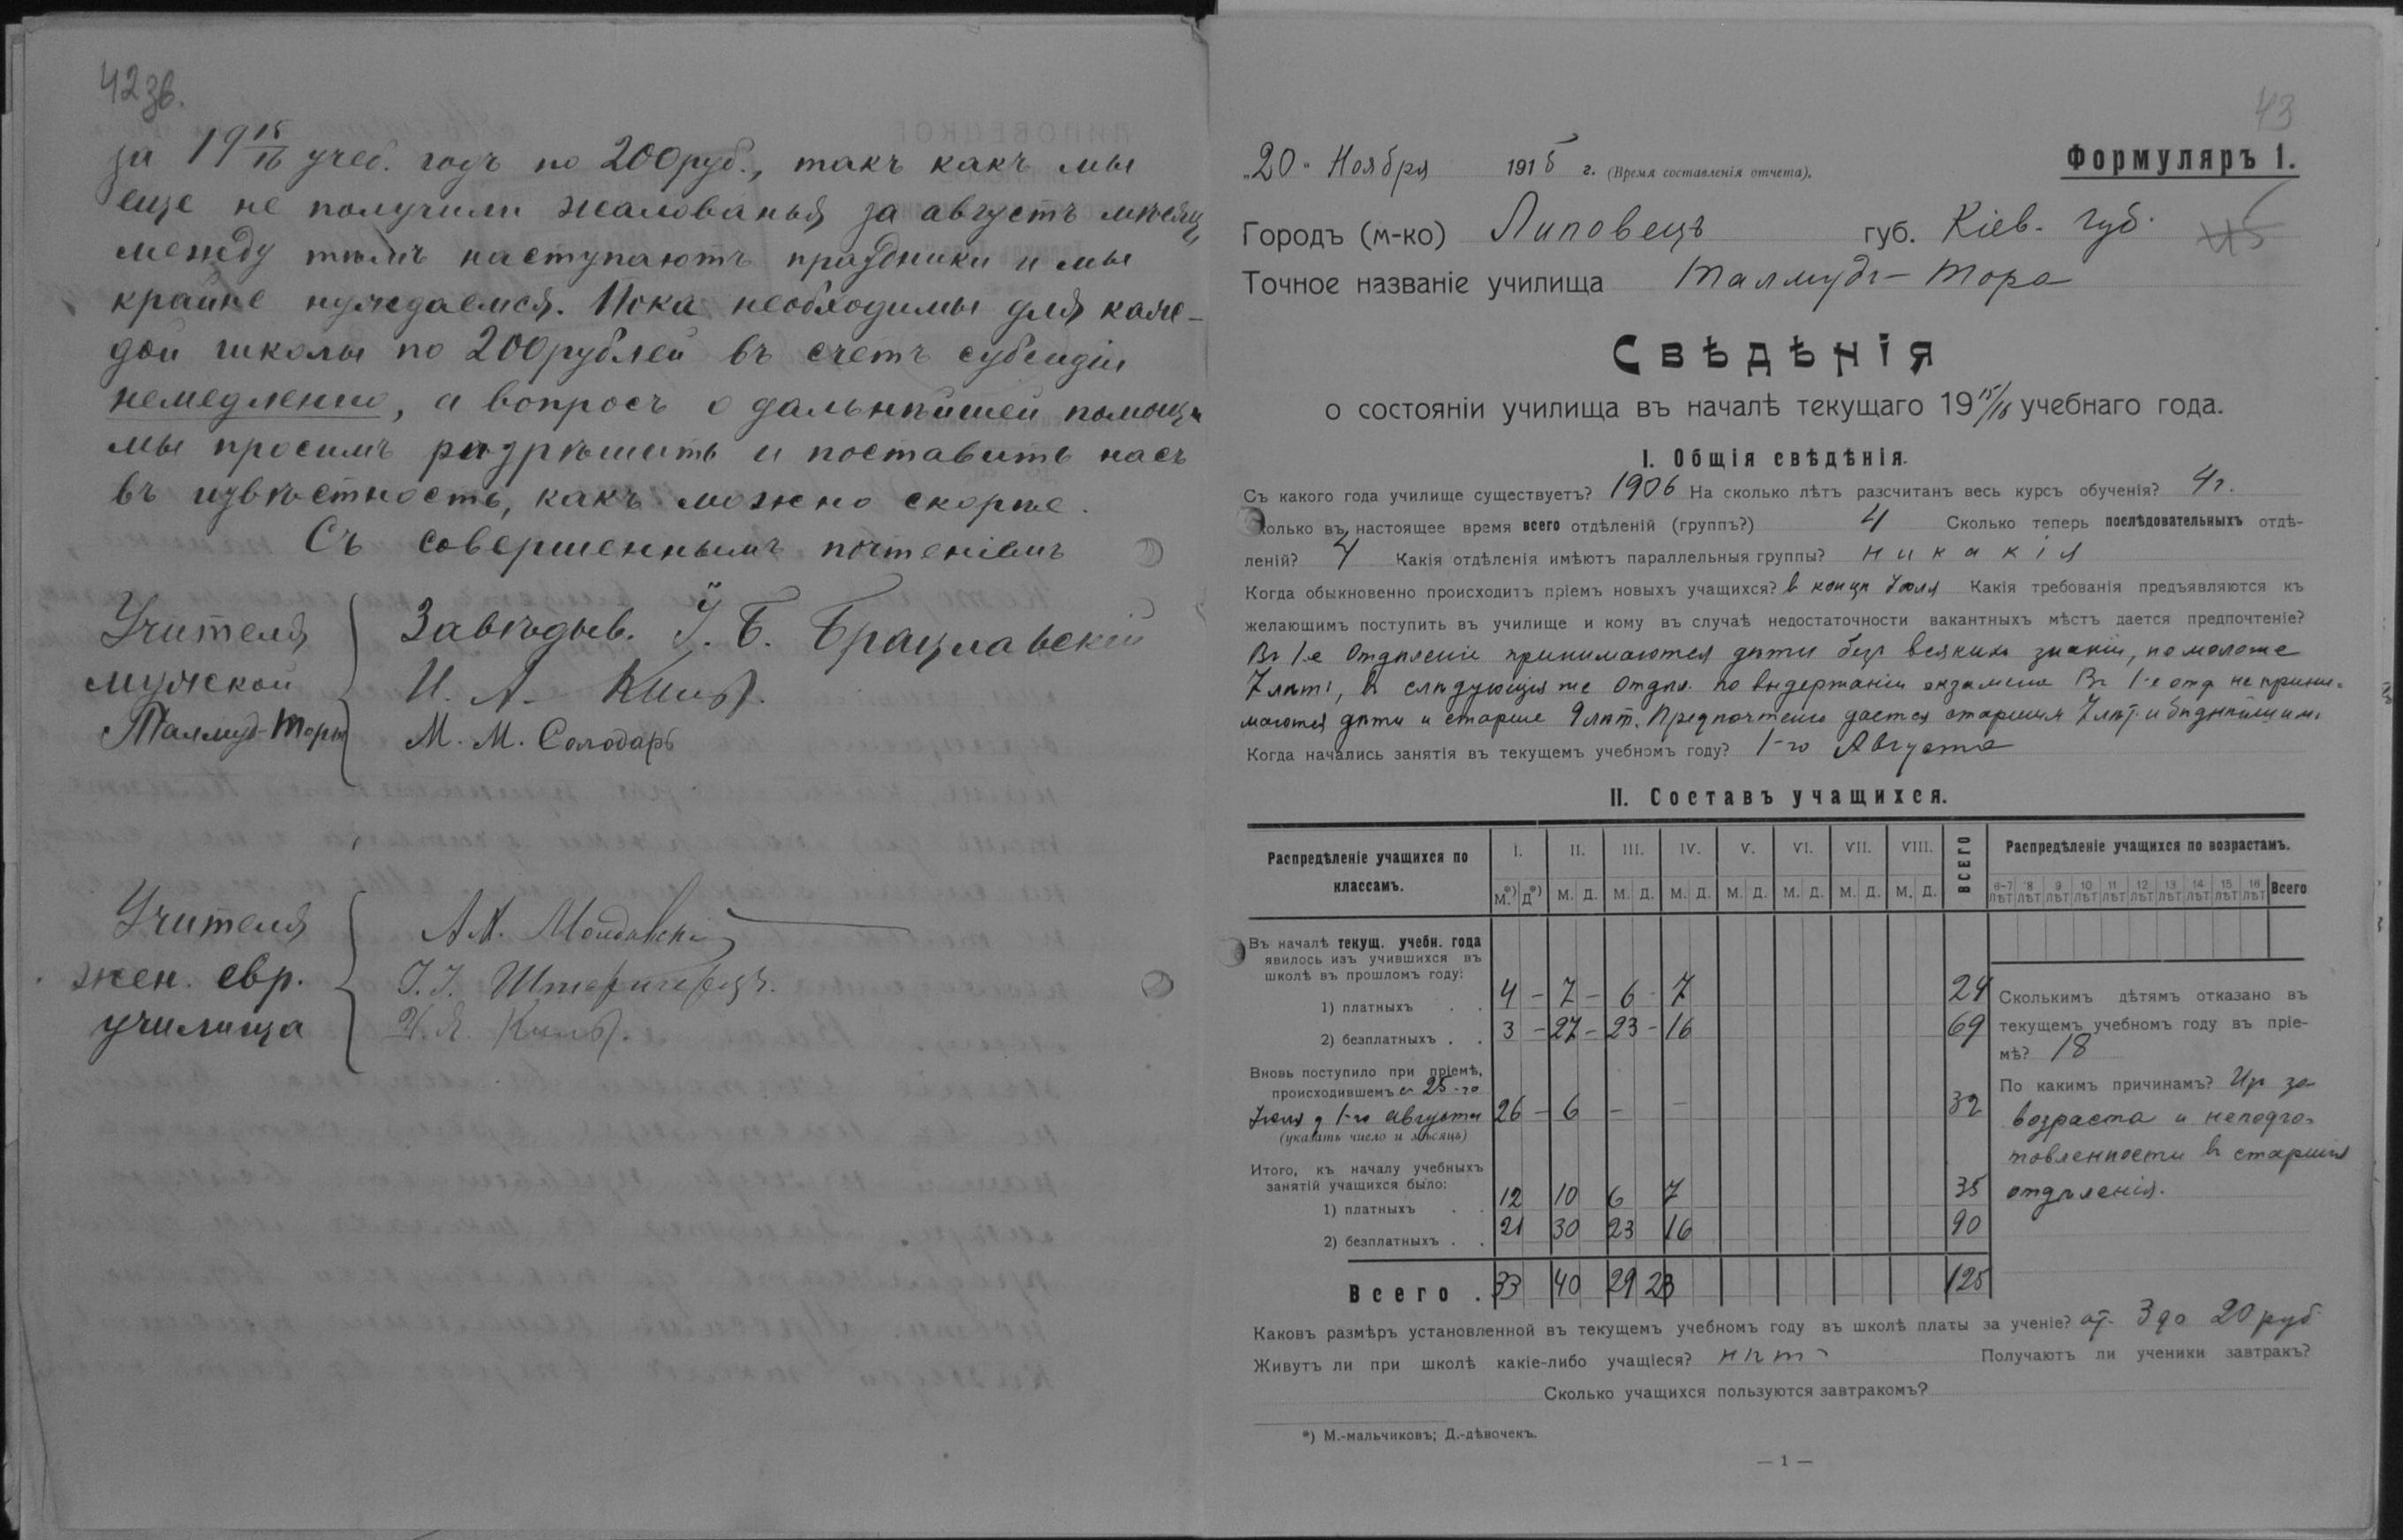 42 зв.
за 19 15/16 учеб. годъ по 200 руб., такъ какъ мы
еще не получили жалованья за августъ мѣсяц
между тѣмъ наступаютъ праздники и мы
крайне нуждаемся. Пока необходимы для каж-
дой школы по 200 рублей въ счетъ субсидіи
немедленно, а вопросъ о дальнѣйшей помощи
мы просимъ разрѣшить и поставить насъ
въ извѣстность, какъ можно скорѣе.
Съ совершеннымъ почтеніемъ
Учителя
мужской
Талмуд-Торы
Завѣдыв. І. Б. Брацлавскій
И. А.
М. М. Солодарь
Учителя
жен. евр.
училища
43
"20" Ноября 1915 г. (Время составленія отчета).
Формуляръ 1.
45
Городъ (м-ко) Липовецъ губ. Кіев. губ.
Точное названіе училища Талмудъ-Тора
Свѣдѣнія
о состояніи училища въ началѣ текущаго 19 15/16 учебнаго года.
I. Общія свѣдѣнія.
Съ какого года училище существуетъ? 1906 На сколько лѣтъ разсчитанъ весь курсъ обученія? 4 г.
колько въ настоящее время всего отдѣленій (группъ?) 4 Сколько теперь послѣдовательныхъ отдѣ-
леній? 4 Какія отдѣленія имѣютъ параллельныя группы? никакія
Когда обыкновенно происходитъ пріемъ новыхъ учащихся? в концѣ Іюля Какія требованія предъявляются къ
желающимъ поступить въ училище и кому въ случаѣ недостаточности вакантныхъ мѣстъ дается предпочтеніе?
Въ 1-е Отдѣленіе принимаются дѣти безъ всякихъ знаній, не моложе
7 лѣтъ, въ слѣдующія же отдѣл. по выдержаніи экзамена Въ 1-е отд. не прини-
маются дѣти и старше 9 лѣт. Предпочтеніе дается старшим 7 лѣт. и бѣднѣйшим.
Когда начались занятія въ текущемъ учебномъ году? 1-го Августа
II. Составъ учащихся.
Распредѣленіе учащихся по классамъ. I. II. III. IV. V. VI. VII. VIII. ВСЕГО Распредѣленіе учащихся по возрастамъ.
М.*) Д*) М. Д. М. Д. М. Д. М. Д. М. Д. М. Д. М. Д. 6-7 лѣт 8 лѣт 9 лѣт 10 лѣт 11 лѣт 12 лѣт 13 лѣт 14 лѣт 15 лѣт 16 лѣт Всего
Въ началѣ текущ. учебн. года
явилось изъ учившихся въ
школѣ въ прошломъ году:
1) платныхъ . . 4 – 7 – 6 – 7 24
2) безплатныхъ . . 3 – 27 – 23 – 16 69
Вновь поступило при пріемѣ,
происходившемъ с 25-го
Іюля д 1-го августа 26 – 6 – – 32
(указать число и мѣсяцъ)
Итого, къ началу учебныхъ
занятій учащихся было:
1) платныхъ . . 12 10 6 7 35
2) безплатныхъ . . 21 30 23 16 90
Всего . 33 40 29 23 125
Сколькимъ дѣтямъ отказано въ
текущемъ учебномъ году въ пріе-
мѣ? 18
По какимъ причинамъ? Из за
возраста и неподго-
товленности въ старшія
отдѣленія.
Каковъ размѣръ установленной въ текущемъ учебномъ году въ школѣ платы за ученіе? от 3 до 20 руб
Живутъ ли при школѣ какіе-либо учащіеся? нѣтъ Получаютъ ли ученики завтракъ?
Сколько учащихся пользуются завтракомъ?
*) М.-мальчиковъ; Д.-дѣвочекъ.
— 1 —